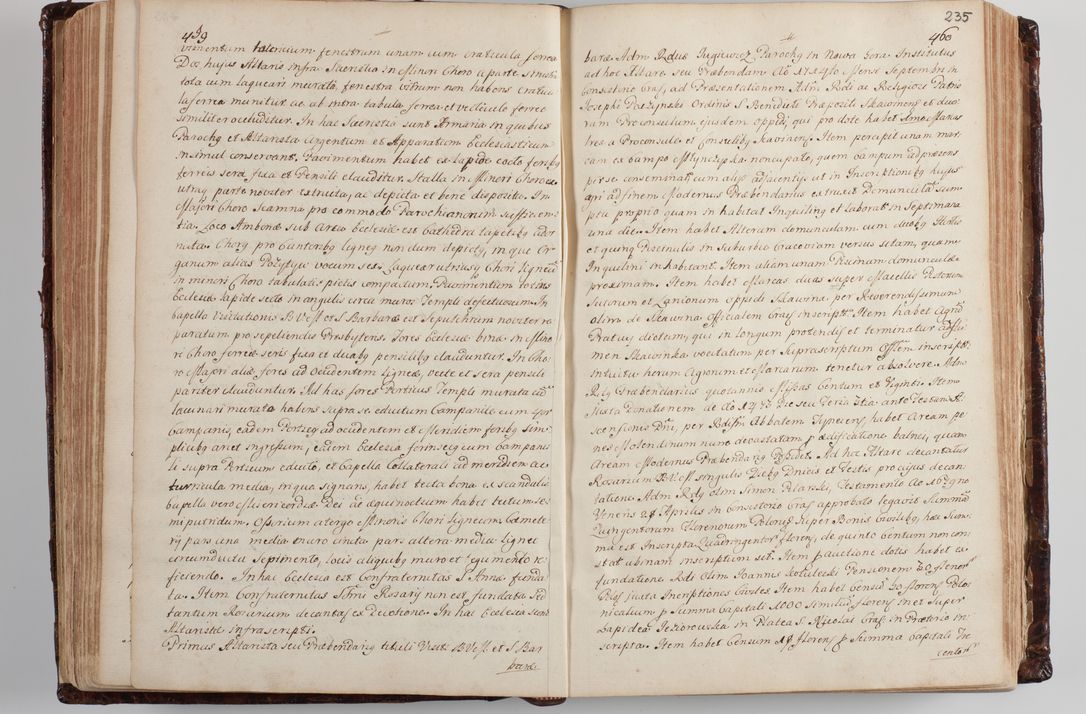 459
vimentum latericium fenestram unam cum craticula ferrea
Dce hujus Altaris infra Sacristia in Minori Choro a parte sinistra
tota cum laqueari murata, fenestra vitrum non habens cratic
la ferrea munitur ac ab intra tabula ferrea et vecticulo ferreo
similiter occluditur. In hac Sacristia sunt Armaria in quibus
Parochg et Altarista Argentum et Apparatum Ecclesiasticum
insimul conservant. Pavimentum habet ex lapide cocto foribg
ferreis sera fixa et Pensili clauditur. Stalla in Minori Choro ex
utraq parte noviter extructa, ac depicta et bene disposita. In
Majori Choro Scamna pro commodo Parochianorum sufficien
tia. Loco Ambonæ sub Arcu Ecclesiæ est Cathedra tapetibg ador
nata. Chorg pro Cantoribg ligneg nondum depictg, in quo Or
ganum alias Pozytyw vocum sex. Laquear utriusq Chori ligneū
in minori Choro tabulatis pictis compactum. Pavimentum totius
Ecclesiæ lapide secto in angulis circa muros Templi defectuosum. In
Capella Visitationis B V M et S Barbaræ est Sepulchrum noviter re
paratum pro sepeliendis Presbyteris. Fores Ecclesiæ binæ in Mino
ri Choro ferreis seris fixa et duabg pensilibg clauduntur. In Cho
ro Majori aliæ fores ad occidentem ligneæ, vecte et sera pensili
pariter clauduntur. Ad has fores Porticus Templi murata cū
lacunari murato habens supra se eductum Campanile cum 4or
Campanis, eadem Porticg ad occidentem et Meridiem foribg sim
plicibg aret ingressum, eidem Ecclesia formæ cum Campani
li supra Porticum educto, et Capella Collaterali ad meridiem ac
turricula media, in qua signans habet tecta bona ex scandulis
Capella vero Misericordiæ Dei ad æquinoctium habet tectum se
miputridum. Ossarium a tergo Minoris Chori ligneum Cæmete
rg pars una media muro cincta pars altera media lignei
circumducta sepimento, locis aliquibg muro et tegumento re
ficiendo. In hac Ecclesia est Confraternitas S Annæ funda
ta. Item Confraternitas SSmi Rosarg non est fundata sed
tantum Rosarium decantat ex Devotione. In hac Ecclesia sunt
Altaristæ infrascripti.
Primus Altarista seu Præbendarig tituli Visit: B V M. et S Bar
baræ
235
460
baræ Adm Rdus Jugiewicz Parochg in Nowa Gora Institutus
ad hoc Altare seu Præbendam Ao 1740 Mense Septembris in
Consistorio Craf, ad Præsentationem Adm Rdi ac Religiosi Patris
Josephi Paszynski Ordinis S Benedicti Præpositi Skavinens et duo
rum Proconsulum ejusdem oppidi, qui pro dote habet Smos
tres a Proconsule et Consulibg Skavinens. Item percipit unam mar
cam ex Campo Mlynczyska noncupato, quem Campum ad præsens
per se conseminat cum aliis adjacentiis ut in Inscriptionibg hujus
agri ad finem Modernus Præbendarius extruxit domunculā sum
ptu proprio quam inhabitat Inquiling et laborat in septimana
una die. Item habet Alteram domunculam cum duobg Hortis
et quinq Piscinulis in Suburbio Cracoviam versus sitam, quam
Inquilini inhabitant. Item aliam unam Piscinam domunculæ
proximam. Item habet Marcas duas super Macellis Pistorum
Sutorum et Lanionum oppidi Skawina per Reverendissimum
olim de Skawina Officialem Craf inscriptū. Item habet Agrū
Pratug dictum, qui in longum protendif et terminatur ad flu
men Skawinka vocitatum per suprascriptum Offlem inscript:
Intuitu horum Agrorum et Marcarum tenetur absolvere Adm
Rdg Præbendarius quotannis Missas Centum et Viginti. Item
Juxta Donationem de Ao 1477 Die seu Feria 3tia ante Festum A
scensionis Dni, per Rdissm Abbatem Tynecens, habet Aream pe
nes Molendinum nunc devastatam p ædificatione balnei, quam
Aream Modernus Præbendarg Possidet. Ad hoc Altare decantatur
Rosarium B V M singulis Diebg Dnicis et Festis pro cujus decan
tatione Adm Rdg olm Simon Pilarski, Testamento Ao 1679no
Veneris 28 Aprilis in Consistorio Craf approbato legavit Summā
Quingentorum Florenorum Polonf super Bonis Civilibg, hæc sum
ma est Inscripta Quadringentor floren, de quinto Centum non con
stat ubinam inscriptum sit. Item p auctione dotis habet ex
fundatione Rdi olim Joannis Kozulecki Pensionem 20 florenor
Polf juxta Inscriptiones Civiles Item habet Censū 30 floreng Polo
nicalium p Summa Capitali 1000 Similiū floreng in et super
Lapidea Jeziorowska in Platea S Nicolai Craf in Prætorio in
scripta. Item habet Censum 18 floreng p Summa Capitali Tre
centor